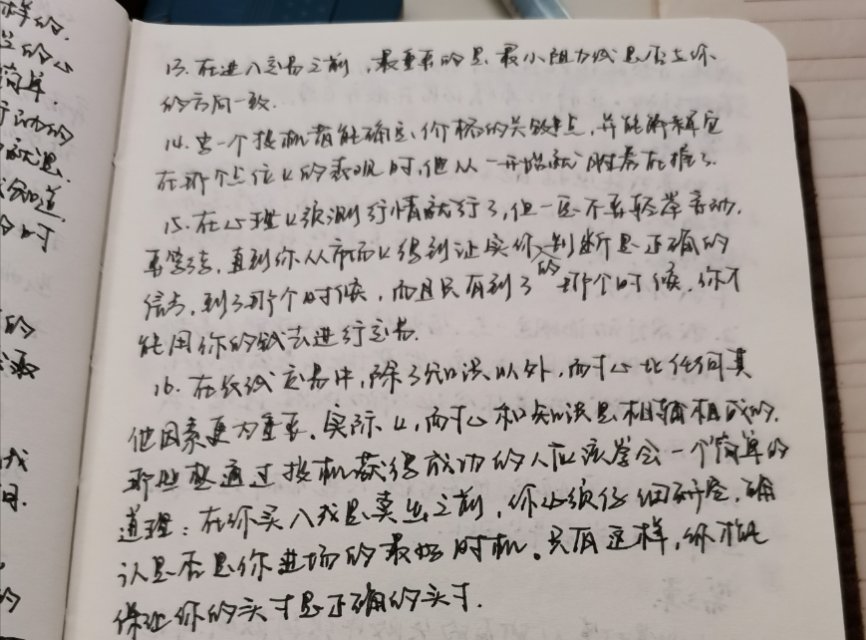 13. 在进入交易之前，最重要的是最小阻力线是否与你
的方向一致.
14. 当一个投机者能确定价格的关键点，并能解释它
在那个点位上的表现时，他从一开始就胜券在握了.
15. 在心理上预测行情就行了，但一定不要轻举妄动.
要等待，直到你从市场上得到证实你的判断是正确的
信号，到了那个时候，而且只有到了那个时候，你才
能用你的钱去进行交易.
16. 在长线交易中，除了知识以外，耐心比任何其
他因素更为重要。实际上，耐心和知识是相辅相成的.
那些想通过投机获得成功的人应该学会一个简单的
道理：在你买入或是卖出之前，你必须仔细研究，确
认是否是你进场的最好时机。只有这样，你才能
保证你的头寸是正确的头寸.